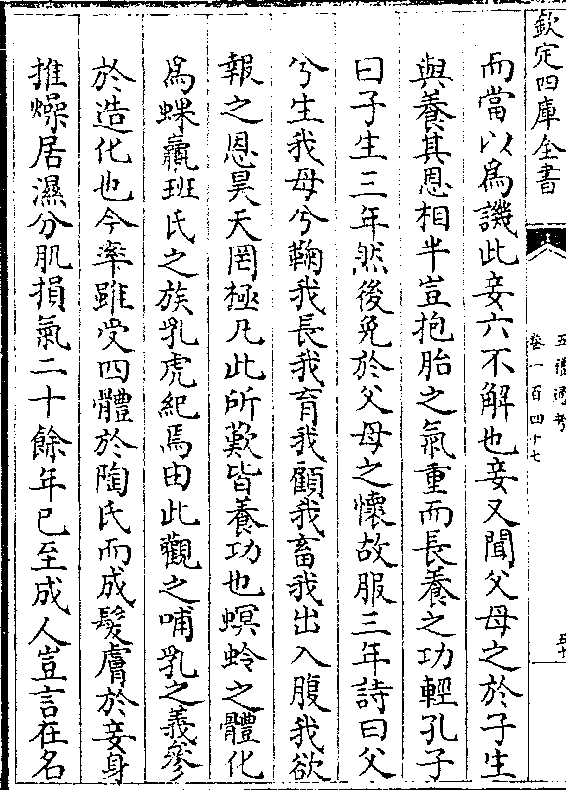 欽定四庫全書
五禮通考
卷一百四十七
而當以為譏此妾六不解也妾又聞父母之於子生
與養其恩相半豈抱胎之氣重而長養之功輕孔子
曰子生三年然後免於父母之懷故服三年詩曰父
兮生我母兮鞠我長我育我顧我畜我出入腹我欲
報之恩昊天罔極凡此所歎皆養功也螟蛉之體化
為蜾蠃班氏之族乳虎紀焉由此觀之哺乳之義參
於造化也今率雖受四體於陶氏而成髮膚於妾身
推燥居濕分肌損氣二十餘年已至成人豈言在名